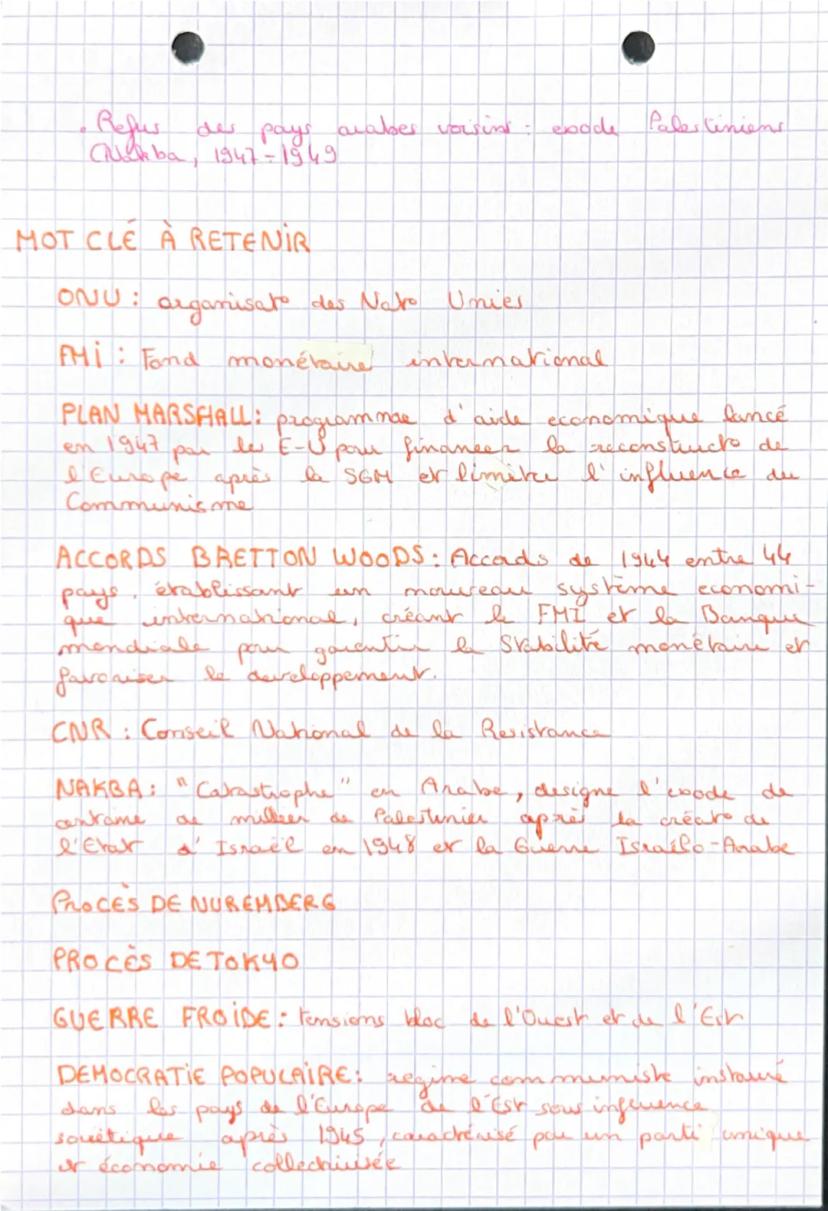 . Refus des pays arabes voisins : exode Palestiniens
(Nakba, 1947-1949
MOT CLÉ À RETENIR
ONU : organisato des Nato Unies
FMI : Fond monétaire international
PLAN MARSHALL : programme d'aide economique lancé
en 1947 par les E-U pour financer la reconstructo de
l'Europe après la SGM et limiter l'influence du
Communisme
ACCORDS BRETTON WOODS : Accords de 1944 entre 44
pays, établissant un nouveau système economi-
que international, créant le FMI et la Banque
mondiale pour garantir la Stabilité monétaire et
favoriser le developpement.
CNR : Conseil National de la Resistance
NAKBA : "Catastrophe" en Arabe, designe l'exode de
centaine de millier de Palestinien après la créato de
l'Etat d'Israël en 1948 et la Guerre Israélo-Arabe
PROCÈS DE NUREMBERG
PROCÈS DE TOKYO
GUERRE FROIDE : tensions bloc de l'Ouest et de l'Est
DEMOCRATIE POPULAIRE : regime communiste instauré
dans les pays de l'Europe de l'Est sous influence
soviétique après 1945, caractérisé par un parti unique
et économie collectivisée